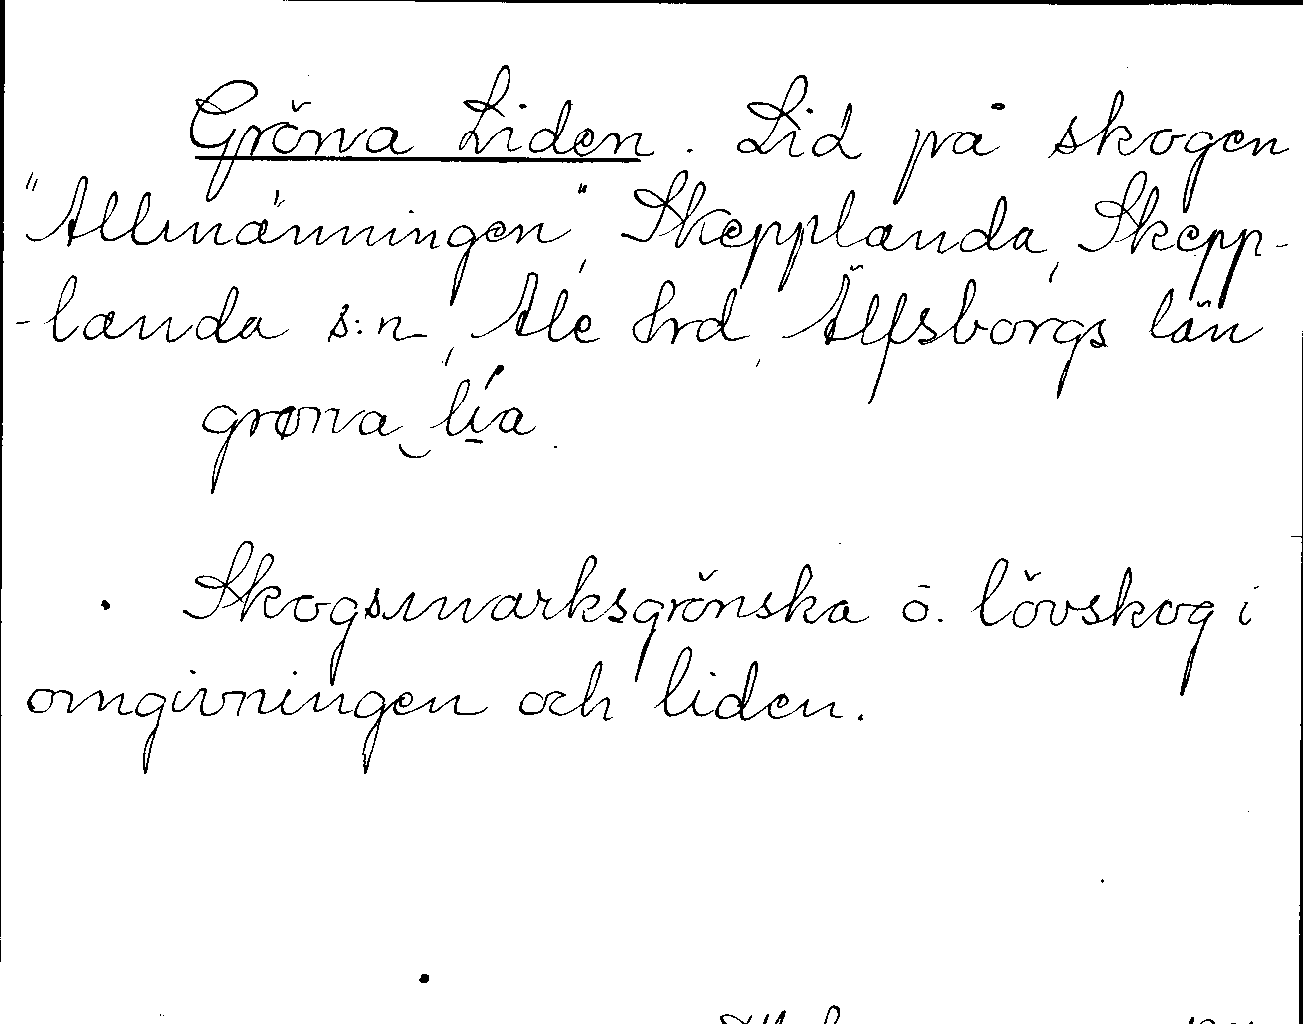 Gröna Liden. Lid på skogen
"Allmänningen", Skepplanda, Skepp-
-landa s:n, Ale hrd, Älfsborgs län
grøna‿lı́a
Skogsmarksgrönska o. lövskog i
omgivningen och liden.